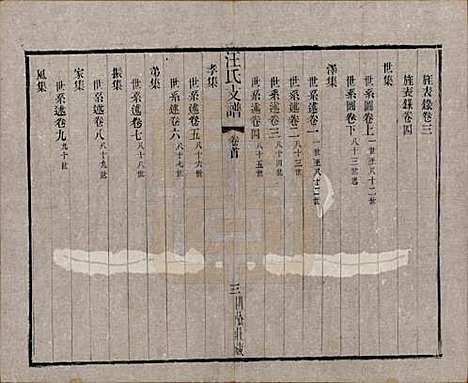 旌表錄卷三
旌表錄卷四
世集
世系圖卷上一世至八十二世
世系圖卷下八十三世起
澤集
世系述卷一一世至八十二世
世系述卷二八十三世
世系述卷三八十四世
世系述卷四八十五世
汪氏支譜
卷首
三
孝集
世系述卷五八十六世
世系述卷六八十七世
弟集
世系述卷七八十八世
振集
世系述卷八八十九世
家集
世系述卷九九十世
風集